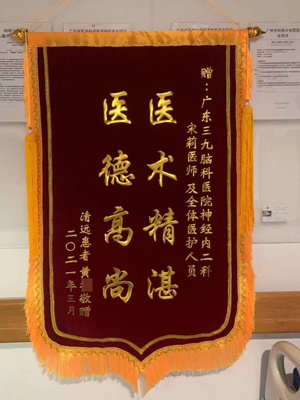 赠：广东三九脑科医院神经内二科
宋莉医师及全体医护人员
医术精湛
医德高尚
清远患者 黄 敬赠
二〇二一年三月